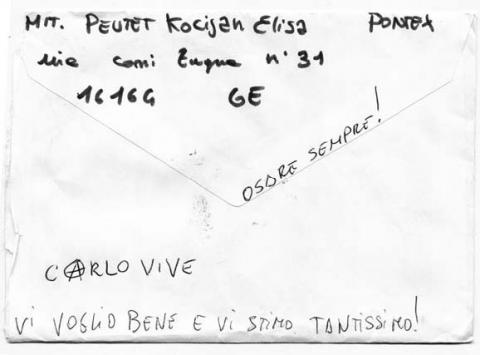 MIT. PEUTET Kocijan Elisa
n° 31
16164 GE
OSARE SEMPRE!
CⒶRLO VIVE
VI VOGLIO BENE E VI STIMO TANTISSIMO!